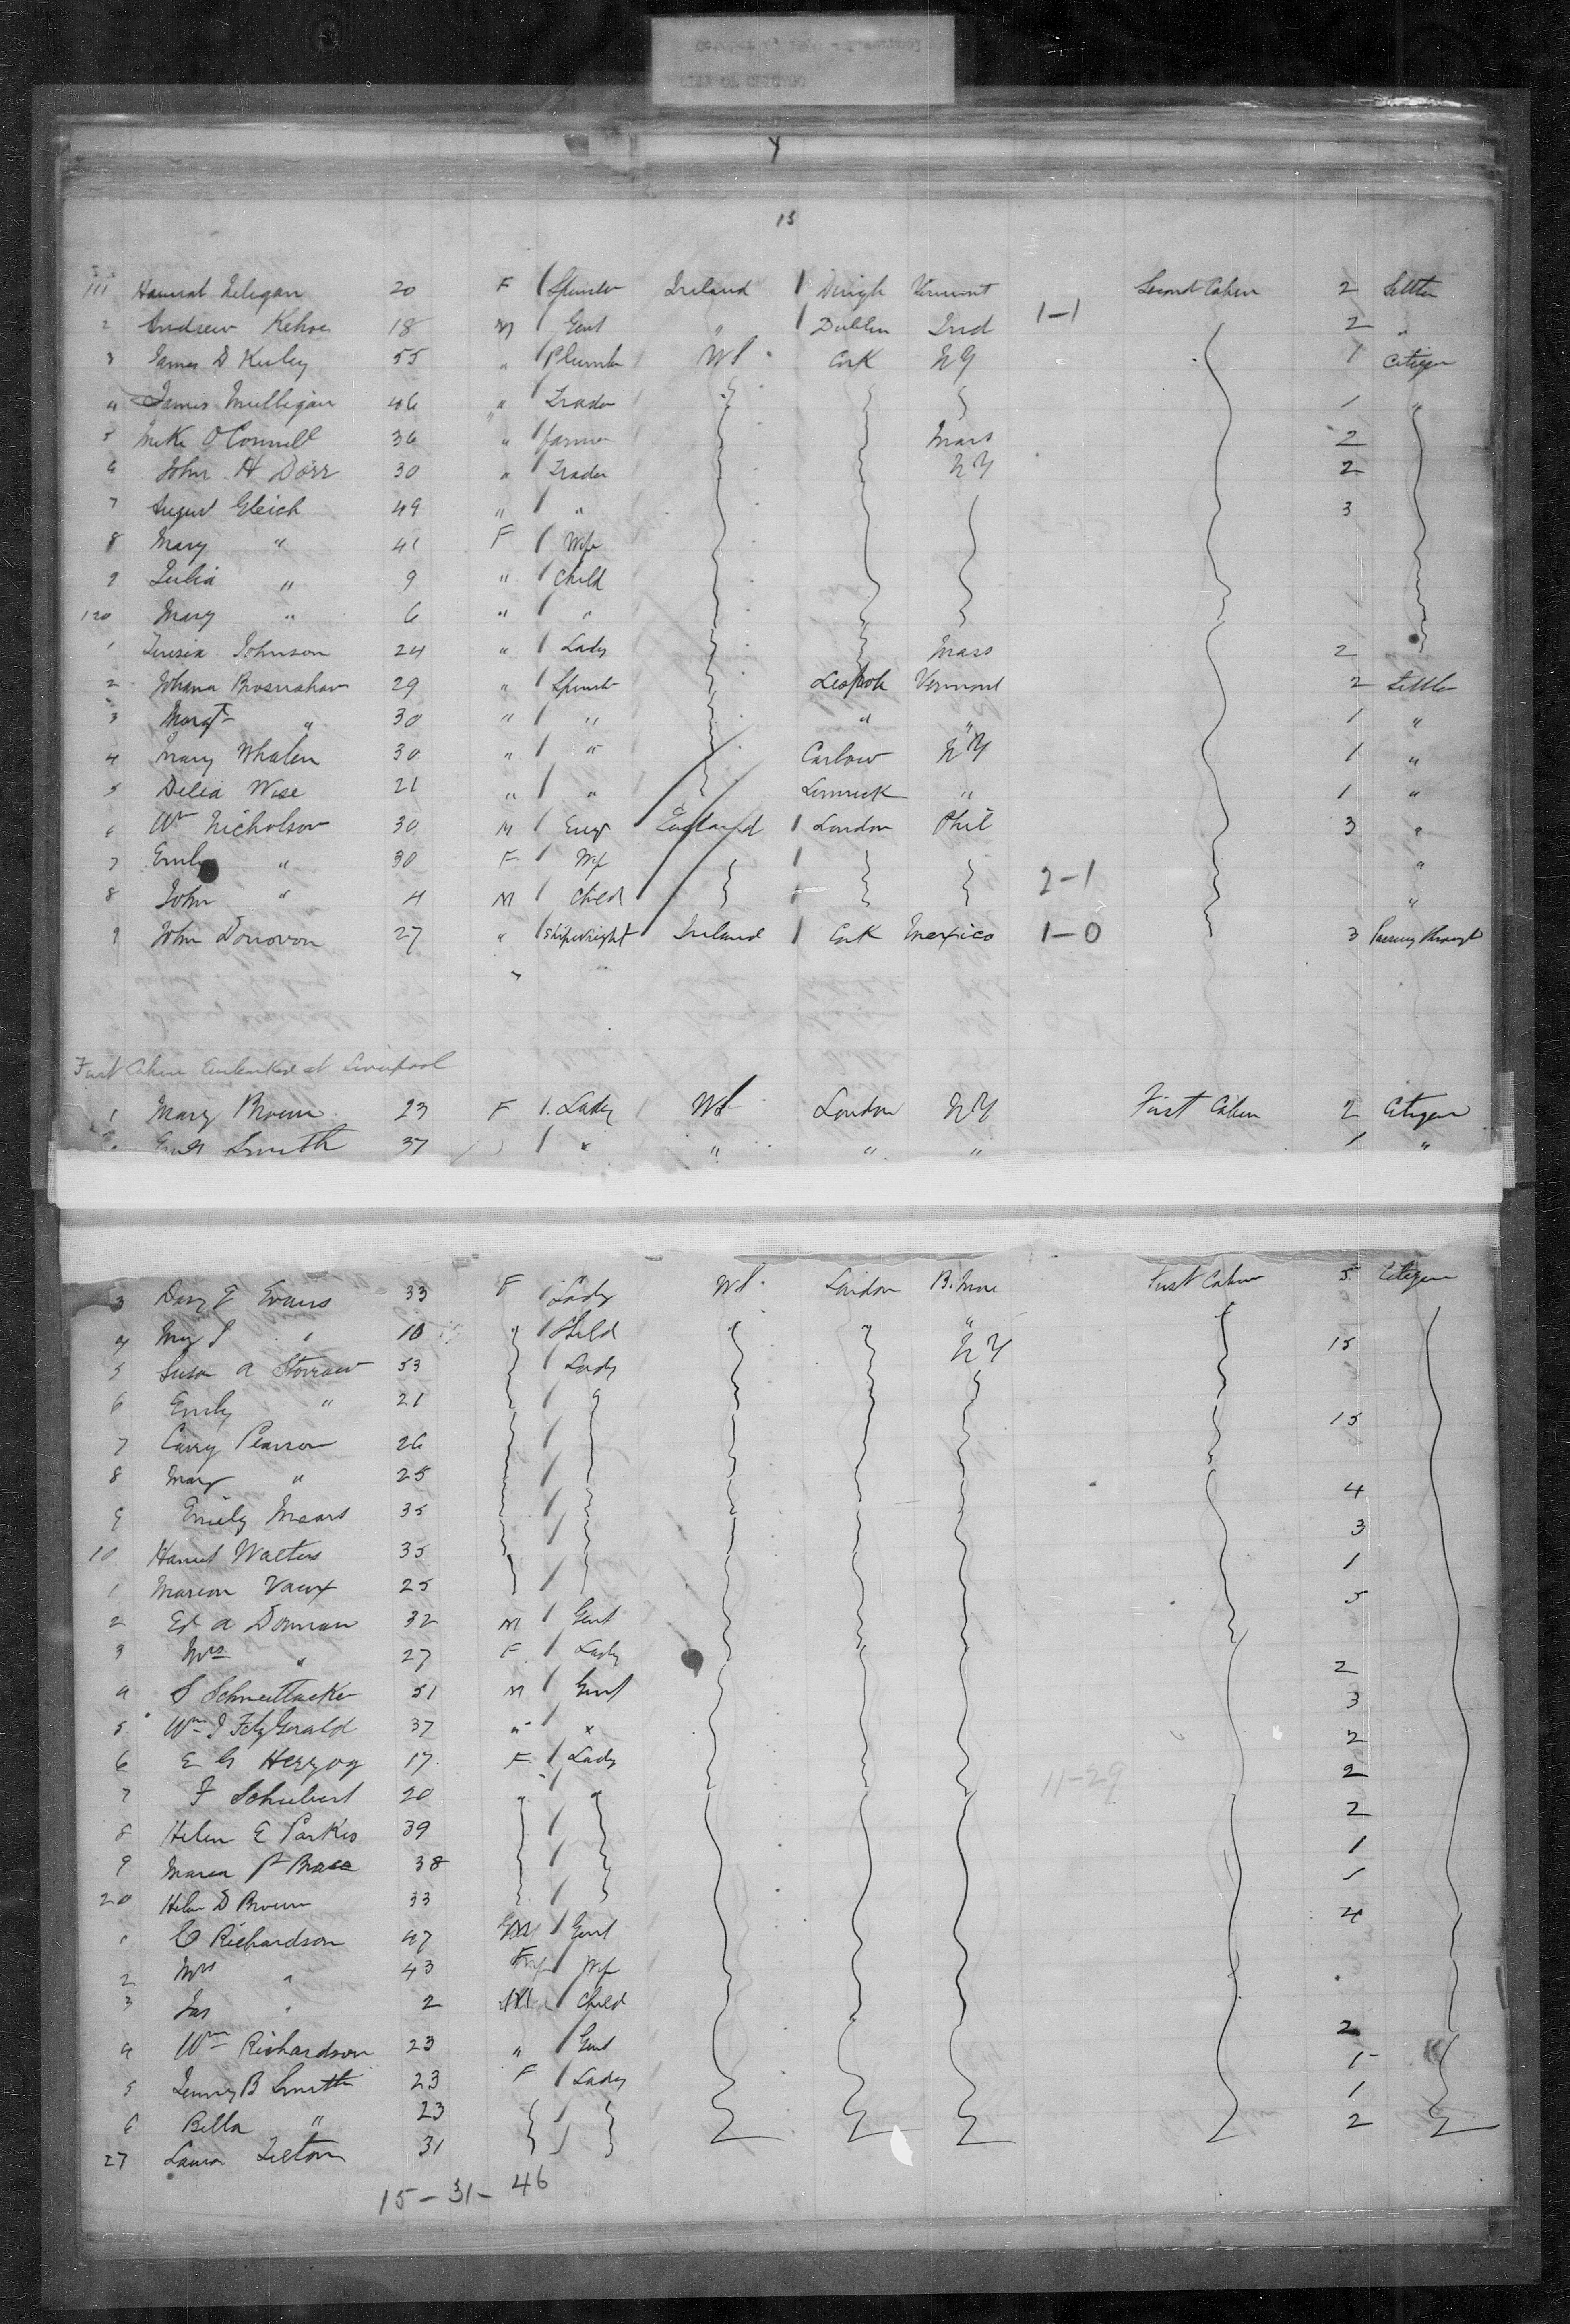 15
111 Hannah Neligan 20 F 1 Spinster Ireland 1 Dingle Vermont Second Cabin 2 Settler
2 Andrew Kehoe 18 M 1 Gent " 1 Dublin Ind 1-1 2 "
3 James D Kuley 55 " 1 Plumber 1 US Cork NY 1 Citizen
4 James Mulligan 46 " 1 Trader 1 "
5 Mike O'Connell 36 " 1 farmer Mass 2
6 John H Dorr 30 " 1 Trader NY 2
7 August Gleich 49 " 1 " 3
8 Mary " 41 F 1 Wife
9 Julia " 9 " 1 Child
120 Mary " 6 " 1 "
1 Teresia Johnson 24 " 1 Lady Mass 2
2 Johana Brosnahan 29 " 1 Spinster Vermont 2 Settler
3 Margt " 30 " 1 " " " 1 "
4 Mary Whalen 30 " 1 " Carlow NY 1 "
5 Delia Wise 21 " 1 " Limrick " 1 "
6 Wm Nicholson 30 M 1 Engr England 1 London Phil 3 "
7 Emily " 30 F 1 Wife 1 "
8 John " 4 M 1 Child 2-1 "
9 John Donovon 27 " 1 Shipwright Ireland 1 Cork Mexico 1-0 3 Passing through
First Cabin Embarked at Liverpool
1 Mary Brown 23 F 1 Lady 1 US London NY First Cabin 2 Citizen
Smith 37 1 " " " " 1 "
3 Evans 33 F 1 Lady US London B. More First Cabin 5 Citizen
4 " 10 " 1 Child " " "
5 Susan A Storrow 53 1 Lady NY 15
6 Emily " 21 1 "
7 Carry Pearson 26 1 15
8 Mary " 25 1
9 Emily Mears 35 1 4
10 Harriet Walters 35 1 3
1 Marion Vaux 25 1 1
2 Ed A Donnan 32 M 1 Gent 5
3 Mrs " 27 F 1 Lady
4 S 51 M 1 Gent 2
5 Wm J FitzGerald 37 " 1 " 3
6 E G Herzog 17 F 1 Lady 2
7 F Schubert 20 " 1 " 11-29 2
8 Helen E Parkis 39 1 2
9 Maria 38 1 1
20 Helen D Brown 33 1 1
1 C Richardson 47 M 1 Gent 4
2 Mrs " 43 F 1 Wife
3 Jas " 2 M 1 Child
4 Wm Richardson 23 " 1 Gent 2
5 Jenny B Smith 23 F 1 Lady 1
6 Bella " 23 1 1
27 Laura Tilton 31 1 2
15-31-46